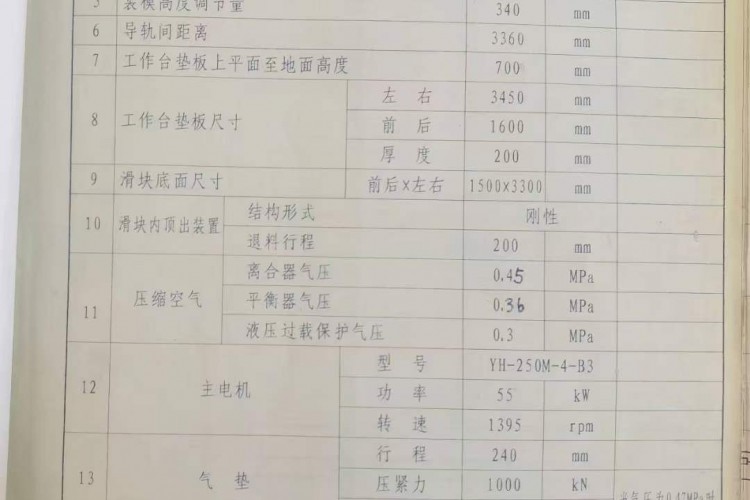 5 装模高度调节量 340 mm
6 导轨间距离 3360 mm
7 工作台垫板上平面至地面高度 700 mm
8 工作台垫板尺寸 左右 3450 mm
前后 1600 mm
厚度 200 mm
9 滑块底面尺寸 前后X左右 1500X3300 mm
10 滑块内顶出装置 结构形式 刚性
退料行程 200 mm
11 压缩空气 离合器气压 0.45 MPa
平衡器气压 0.36 MPa
液压过载保护气压 0.3 MPa
12 主电机 型号 YH-250M-4-B3
功率 55 kW
转速 1395 rpm
13 气垫 行程 240 mm
压紧力 1000 kN